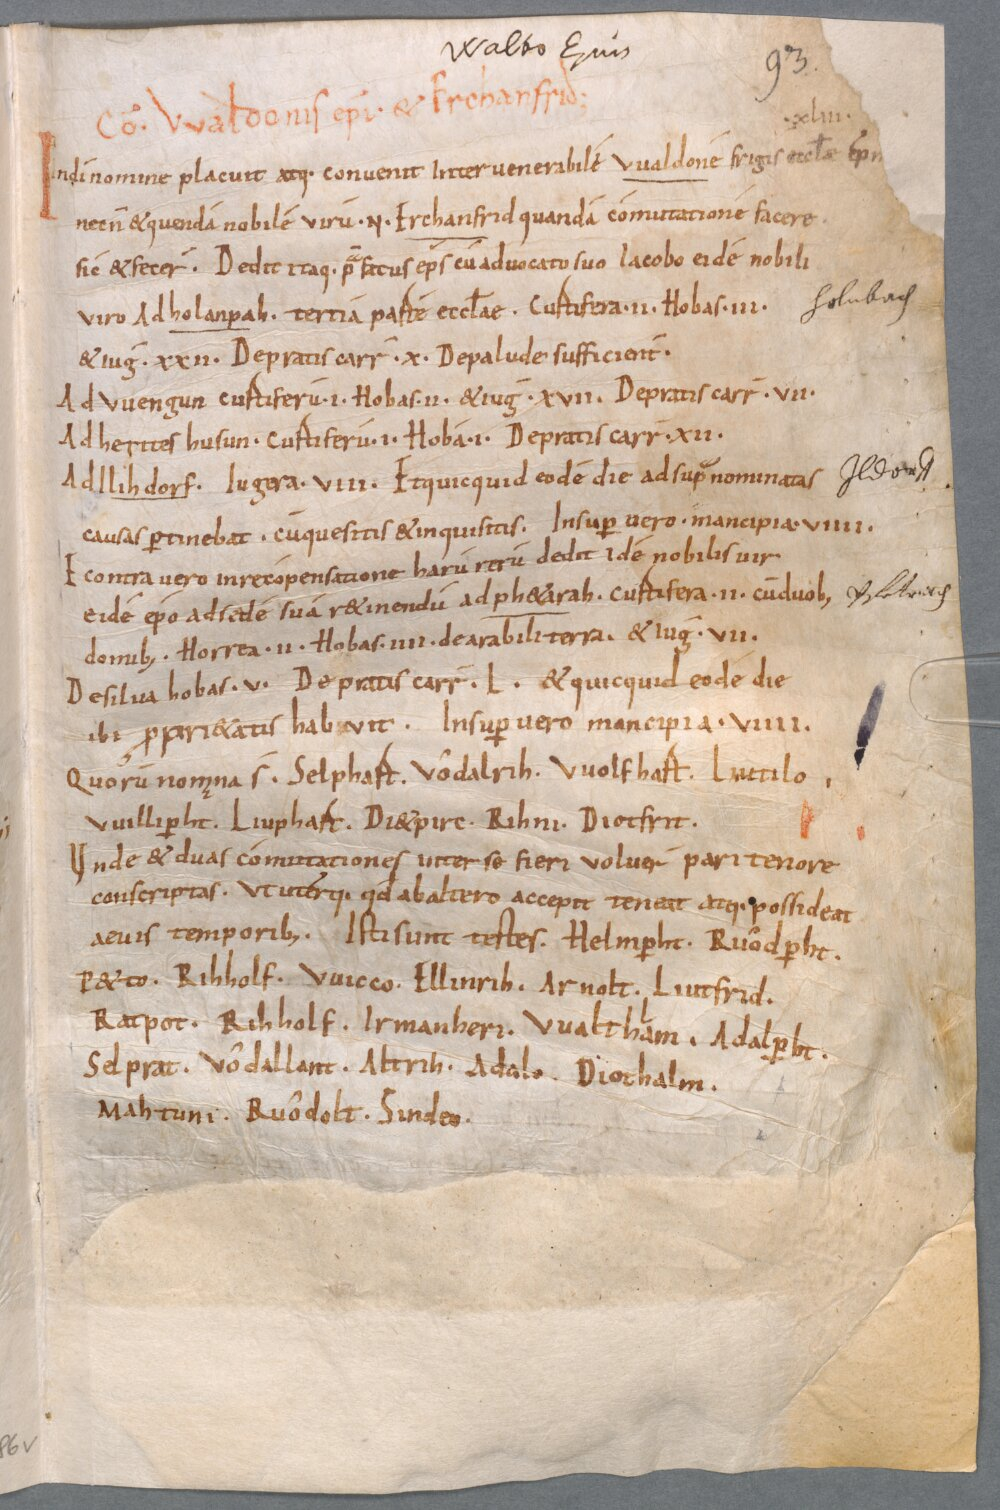 Waldo Epus
93.
Cō. Vvaldonis epi. & Erchanfrid;
.xliii.
In di nomine placuit atq. convenit Inter venerabilē Vualdonē frigis eccłae ep̄m
necn̄ & quendā nobilē virū .N. Erchanfrid quandā cōmutationē facere.
sic & fecer̄. Dedit itaq. p̄fatus ep̄s cū advocato suo Iacobo eidē nobili
viro Ad holanpah. tertiā partē eccłae. Curtifera .ii. Hobas .iii.
holnbach
& iuḡ .xxii. De pratis carr̄ .x. De palude sufficient̄.
Ad Vuengun curtiferū .i. Hobas .ii. & iuḡ .xvii. De pratis carr̄ .vii.
Ad hettes husun. curtiferū .i. Hobā .i. De pratis carr̄ .xii.
Ad Ilihdorf. Iugera .viii. Et quicquid eodē die ad sup̄nominatas
Ildorf
causas ꝑtinebat. cū quesitis & inquisitis. Insuꝑ vero mancipia .viiii.
E contra vero in recōpensatione harū rerū dedit idē nobilis vir
eidē ep̄o ad sedē suā r&inendū ad ph&arah. curtifera .ii. cū duob;
domib;. Horrea .ii. Hobas .iiii. de arabili terra. & iuḡ .vii.
De silua hobas .v. De pratis carr̄ .L. & quicquid eodē die
ibi ꝓpri&atis habuit. Insuꝑ vero mancipia .viiii.
Quorū nomina s̄. Selphart. Vôdalrih. Vuolfhart. Luttilo.
Vuilliꝑht. Liuphart. Di&pirc. Rihni. Diotfrit.
Unde & duas cōmutationes inter se fieri voluer̄ pari tenore
conscriptas. Ut uterq. qd ab altero accepit teneat atq. possideat
aevis temporib;. Isti sunt testes. Helmꝑht. Ruôdꝑht.
P&to. Rihholf. Vuicco. Ellinrih. Arnolt. Liutfrid.
Ratpot. Rihholf. Irmanheri. Vualthām. Adalꝑht.
Selprat. Vôdallant. Altrih. Adalo. Diothalm.
Mahtuni. Ruôdolt. Sindeo.
86v